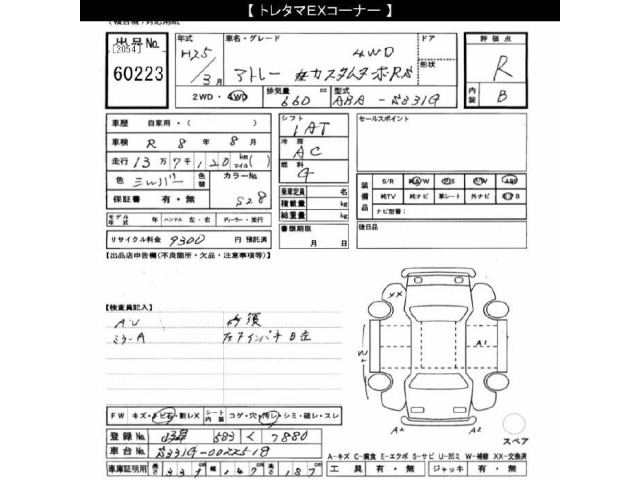 【 トレタマEXコーナー 】
出品No.
[2054]
60223
年式
H25
/3月
車名・グレード
4WD
アトレー カスタムターボRS
ドア
形状
評価点
R
内装 B
2WD・4WD
排気量 660 cc
型式 ABA - S331G
車歴 自家用・( )
車検 R 8年 8月
走行 13万7千120 km マイル( )
色 シルバー 色替
カラーNo. S28
保証書 有・無
モデル年式 年 ハンドル 左・右 ディーラー・並行
リサイクル料金 9300 円 預託済
シフト IAT
冷房 AC
燃料 G
乗車定員 名
積載量 kg
総重量 kg
書類期限
月 日
セールスポイント
装備品
S/R 純AW P/S P/W ABS
純TV 純ナビ 革シート 外ナビ エアB
ナビ型番:
後日品
【出品店申告欄(不良箇所・欠品・注意事項等)】
【検査員記入】
AU
ミラーA
F W キズ・トビ石・割レX シート内装 コゲ・穴・汚レ・シミ・破レ・スレ
XX
W2
A1
A2
A2
スペア
登録No. 583 く 7880
車台No. S331G-0022519
A-キズ C-腐食 E-エクボ S-サビ U-凹ミ W-補修 XX-交換済
車庫証明用 長さ 339 幅 147 高さ 187 工具 有・無 ジャッキ 有・無